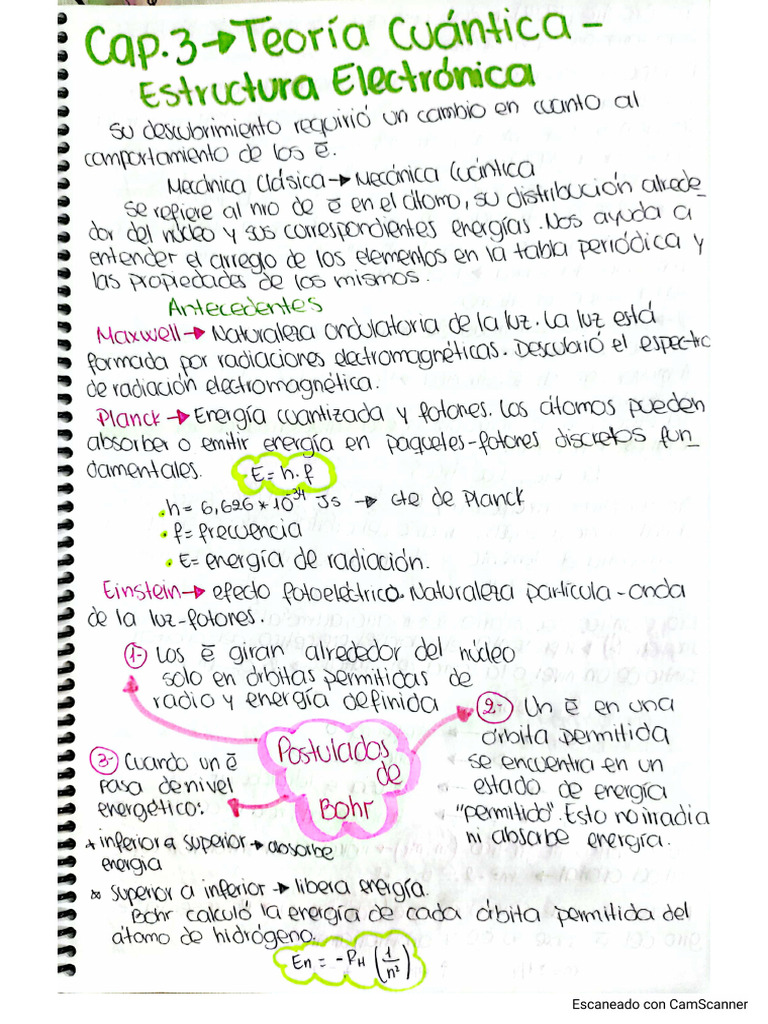 Cap.3→Teoría Cuántica-
Estructura Electrónica
Su descubrimiento requirió un cambio en cuanto al
comportamiento de los e̅.
Mecánica Clásica→Mecánica Cuántica
Se refiere al nro de e̅ en el átomo, su distribución alrede_
dor del núcleo y sus correspondientes energías. Nos ayuda a
entender el arreglo de los elementos en la tabla periódica y
las propiedades de los mismos.
Antecedentes
Maxwell→Naturaleza ondulatoria de la luz. La luz está
formada por radiaciones electromagnéticas. Descubrió el espectro
de radiación electromagnética.
Planck→Energía cuantizada y fotones. Los átomos pueden
absorber o emitir energía en paquetes-fotones discretos fun_
damentales. E=h.f
.h=6,626*10⁻³⁴ Js → cte de Planck
• f=frecuencia
• E=energía de radiación.
Einstein→efecto fotoeléctrico. Naturaleza partícula-onda
de la luz-fotones.
1- Los e̅ giran alrededor del núcleo
solo en órbitas permitidas de
radio y energía definida
2- Un e̅ en una
órbita permitida
se encuentra en un
estado de energía
"permitido". Esto no irradia
ni absorbe energía.
Postulados
de
Bohr
3- Cuando un e̅
pasa de nivel
energético:
* inferior a superior→absorbe
energía
* superior a inferior→libera energía.
Bohr calculó la energía de cada órbita permitida del
átomo de hidrógeno.
En = -RH (1/n²)
Escaneado con CamScanner